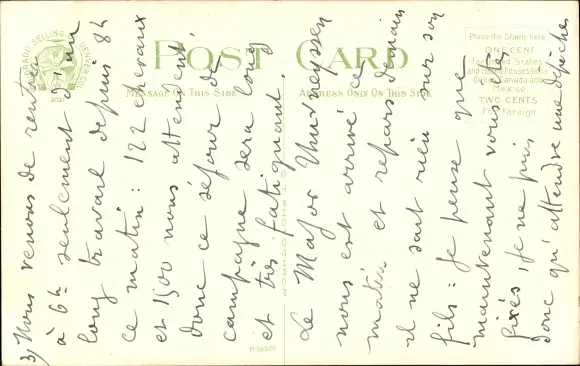 POST CARD
MESSAGE ON THIS SIDE
ADDRESS ONLY ON THIS SIDE
Place the Stamp Here
ONE CENT
For United States
and Island Possessions
Cuba, Canada and
Mexico
TWO CENTS
For Foreign
3) Nous venons de rentrer
à 6h seulement d'un
long travail depuis 8h
ce matin : 122 chevaux
et 1500 nous attendent,
donc ce séjour de
campagne sera long
et très fatiquant.
Le Major
nous est arrivé ce
matin et repars demain
il ne sait rien sur son
fils : je pense que
maintenant vous êtes
fixés, je ne puis
donc qu'attendre une dépêches